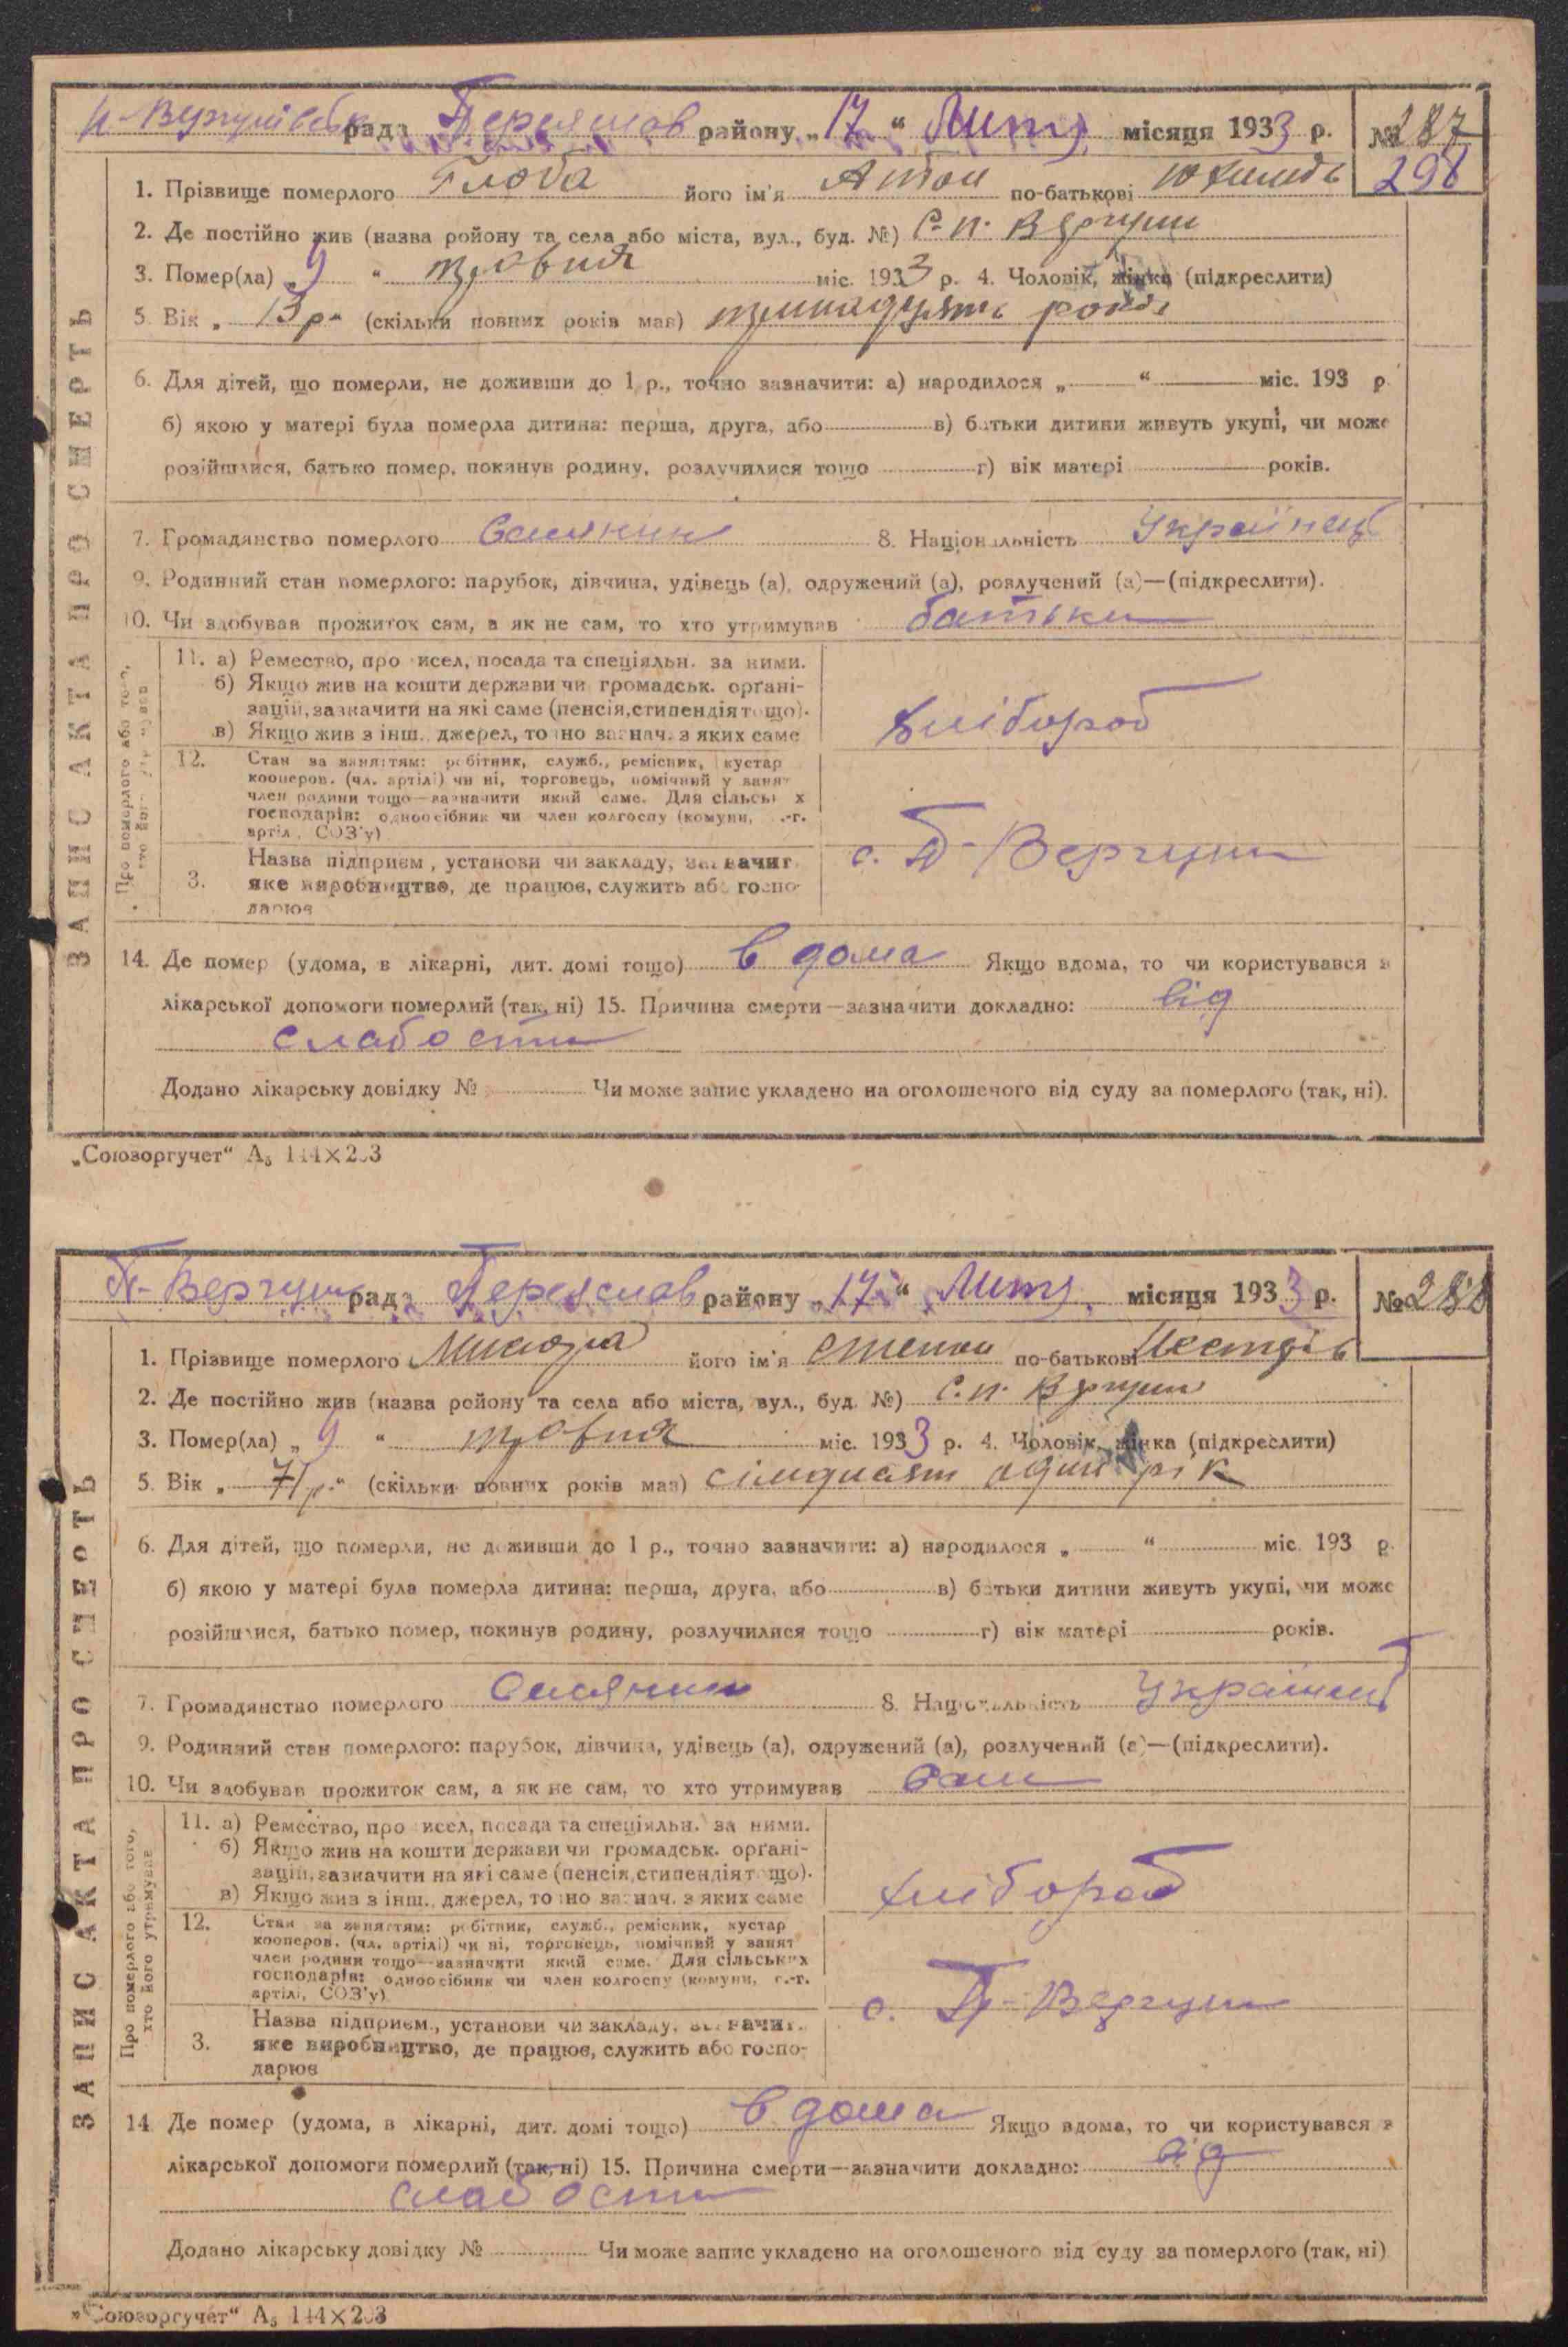 П-Вергунівська рада Переяслов району „17“ Лют. місяця 1933 р. №287
298
1. Прізвище померлого Глоба його ім'я Антон по-батькові
2. Де постійно жив (назва ройону та села або міста, вул., буд. №) С. п. Вергуни
3. Помер(ла) „9“ травня міс. 1933 р. 4. Чоловік, жінка (підкреслити)
5. Вік „13 р.“ (скільки повних років мав) тринадцять років
6. Для дітей, що померли, не доживши до 1 р., точно зазначити: а) народилося „ “ міс. 193 р.
б) якою у матері була померла дитина: перша, друга, або в) батьки дитини живуть укупі, чи може
розійшлися, батько помер, покинув родину, розлучилися тощо г) вік матері років.
7. Громадянство померлого Селянин 8. Національність Українец
9. Родинний стан померлого: парубок, дівчина, удівець (а), одружений (а), розлучений (а)—(підкреслити).
10. Чи здобував прожиток сам, а як не сам, то хто утримував батьки
11. а) Ремество, про исел, посада та спеціяльн. за ними.
б) Якщо жив на кошти держави чи громадськ. органі-
зацій, зазначити на які саме (пенсія, стипендія тощо).
в) Якщо жив з інш. джерел, то но зазнач. з яких саме
хлібороб
12. Стан за заняттям: робітник, служб., ремісник, кустар
кооперов. (чл. артілі) чи ні, торговець, помічний у занят
член родини тощо—зазначити який саме. Для сільськ х
господарів: одноосібник чи член колгоспу (комуни, с.-г.
артілі, СОЗ'у)
3. Назва підприєм., установи чи закладу, зазначит.
яке виробництво, де працює, служить або госпо-
дарює
с. П-Вергуни
14. Де помер (удома, в лікарні, дит. домі тощо) в дома Якщо вдома, то чи користувався з
лікарської допомоги померлий (так, ні) 15. Причина смерти—зазначити докладно: від
слабости
Додано лікарську довідку № Чи може запис укладено на оголошеного від суду за померлого (так, ні).
ЗАПИС АКТА ПРО СМЕРТЬ
Про померлого або того, хто його утримував
„Союзоргучет“ А₅ 144×203
П-Вергун рада Переяслов району „17“ Лют. місяця 1933 р. №288
1. Прізвище померлого його ім'я Степан по-батькові
2. Де постійно жив (назва ройону та села або міста, вул., буд. №) С. п. Вергуни
3. Помер(ла) „9“ травня міс. 1933 р. 4. Чоловік, жінка (підкреслити)
5. Вік „71 р.“ (скільки повних років мав) сімдисят один рік
6. Для дітей, що померли, не доживши до 1 р., точно зазначити: а) народилося „ “ міс. 193 р.
б) якою у матері була померла дитина: перша, друга, або в) батьки дитини живуть укупі, чи може
розійшлися, батько помер, покинув родину, розлучилися тощо г) вік матері років.
7. Громадянство померлого Селянин 8. Національність Українец
9. Родинний стан померлого: парубок, дівчина, удівець (а), одружений (а), розлучений (а)—(підкреслити).
10. Чи здобував прожиток сам, а як не сам, то хто утримував Сам
11. а) Ремество, про исел, посада та спеціяльн. за ними.
б) Якщо жив на кошти держави чи громадськ. органі-
зацій, зазначити на які саме (пенсія, стипендія тощо).
в) Якщо жив з інш. джерел, то но зазнач. з яких саме
хлібороб
12. Стан за заняттям: робітник, служб., ремісник, кустар
кооперов. (чл. артілі) чи ні, торговець, помічний у занят
член родини тощо—зазначити який саме. Для сільських
господарів: одноосібник чи член колгоспу (комуни, с.-г.
артілі, СОЗ'у)
3. Назва підприєм., установи чи закладу, зазначит.
яке виробництво, де працює, служить або госпо-
дарює
с. П-Вергуни
14. Де помер (удома, в лікарні, дит. домі тощо) в дома Якщо вдома, то чи користувався з
лікарської допомоги померлий (так, ні) 15. Причина смерти—зазначити докладно: від
слабости
Додано лікарську довідку № Чи може запис укладено на оголошеного від суду за померлого (так, ні)
ЗАПИС АКТА ПРО СМЕРТЬ
Про померлого або того, хто його утримував
„Союзоргучет“ А₅ 144×203